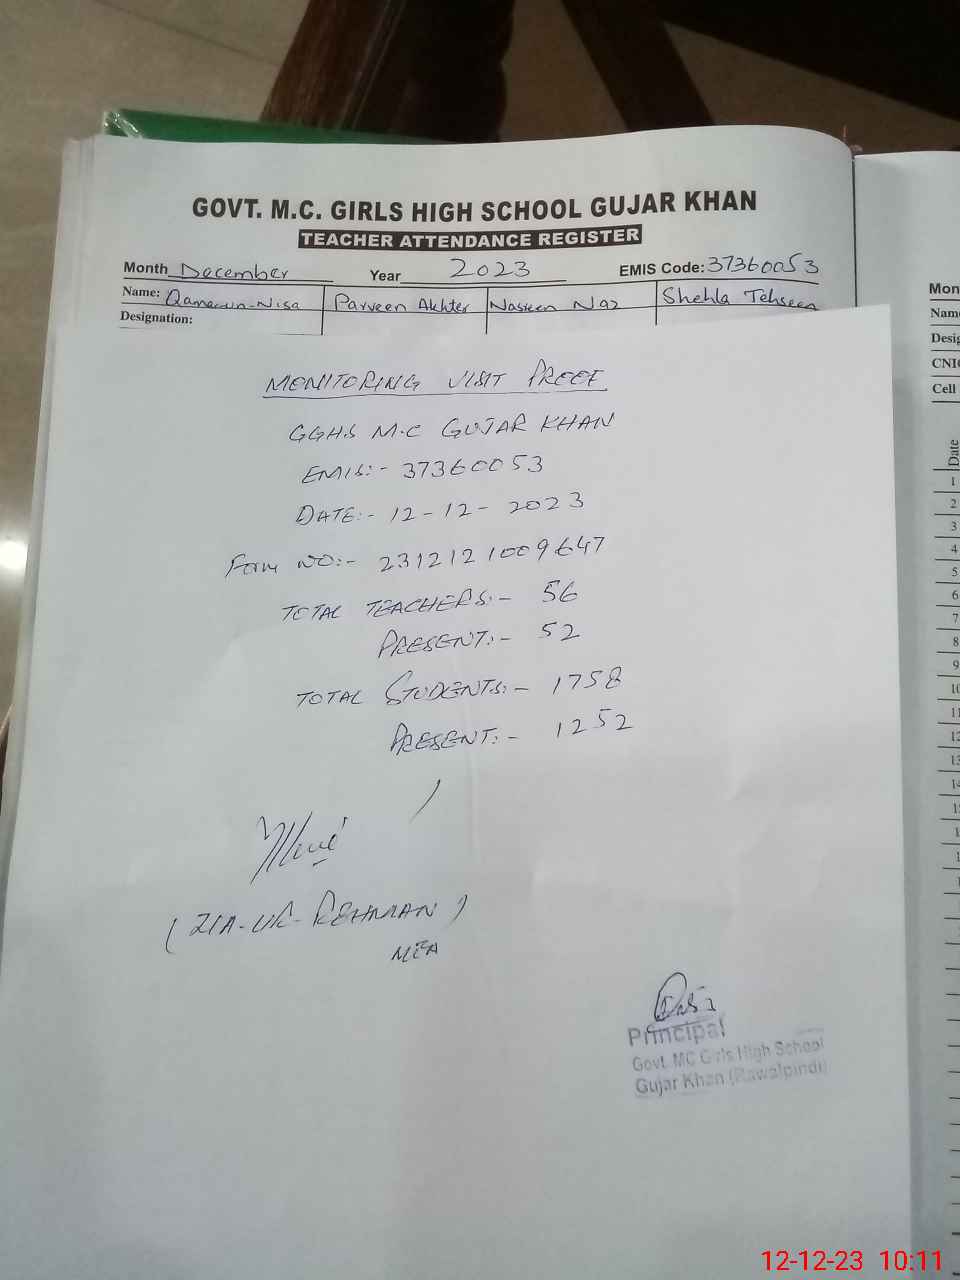 GOVT. M.C. GIRLS HIGH SCHOOL GUJAR KHAN
TEACHER ATTENDANCE REGISTER
Month December Year 2023 EMIS Code: 37360053
Name: Qamarun-Nisa Parveen Akhter Nasreen Naz Shehla Tehseen
Designation:
MONITORING VISIT PROOF
GGHS M.C GUJAR KHAN
EMIS:- 37360053
DATE:- 12-12-2023
Form NO:- 2312121009647
TOTAL TEACHERS:- 56
PRESENT:- 52
TOTAL STUDENTS:- 1758
PRESENT:- 1252
(ZIA-UR-REHMAN)
MEA
Principal
Govt. MC Girls High School
Gujar Khan (Rawalpindi)
Mon
Name
Desig
CNIC
Cell
Date
1
2
3
4
5
6
7
8
9
10
11
12
13
14
12-12-23 10:11